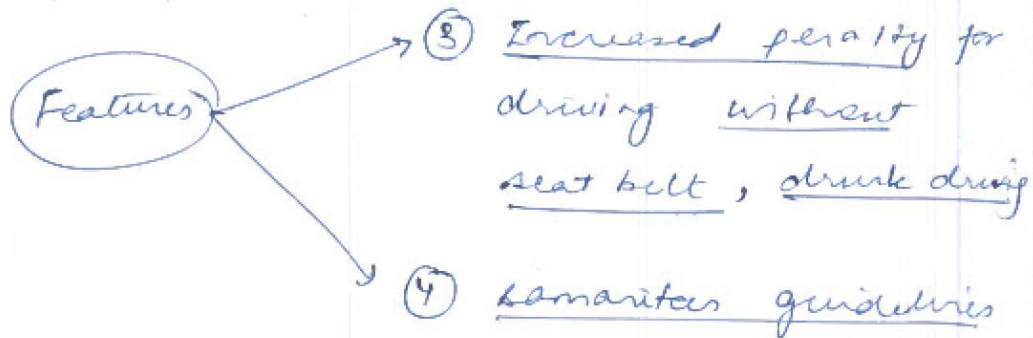 ③ Increased penalty for
Features
driving without
seat belt, drunk driving
④ samaritan guidelines